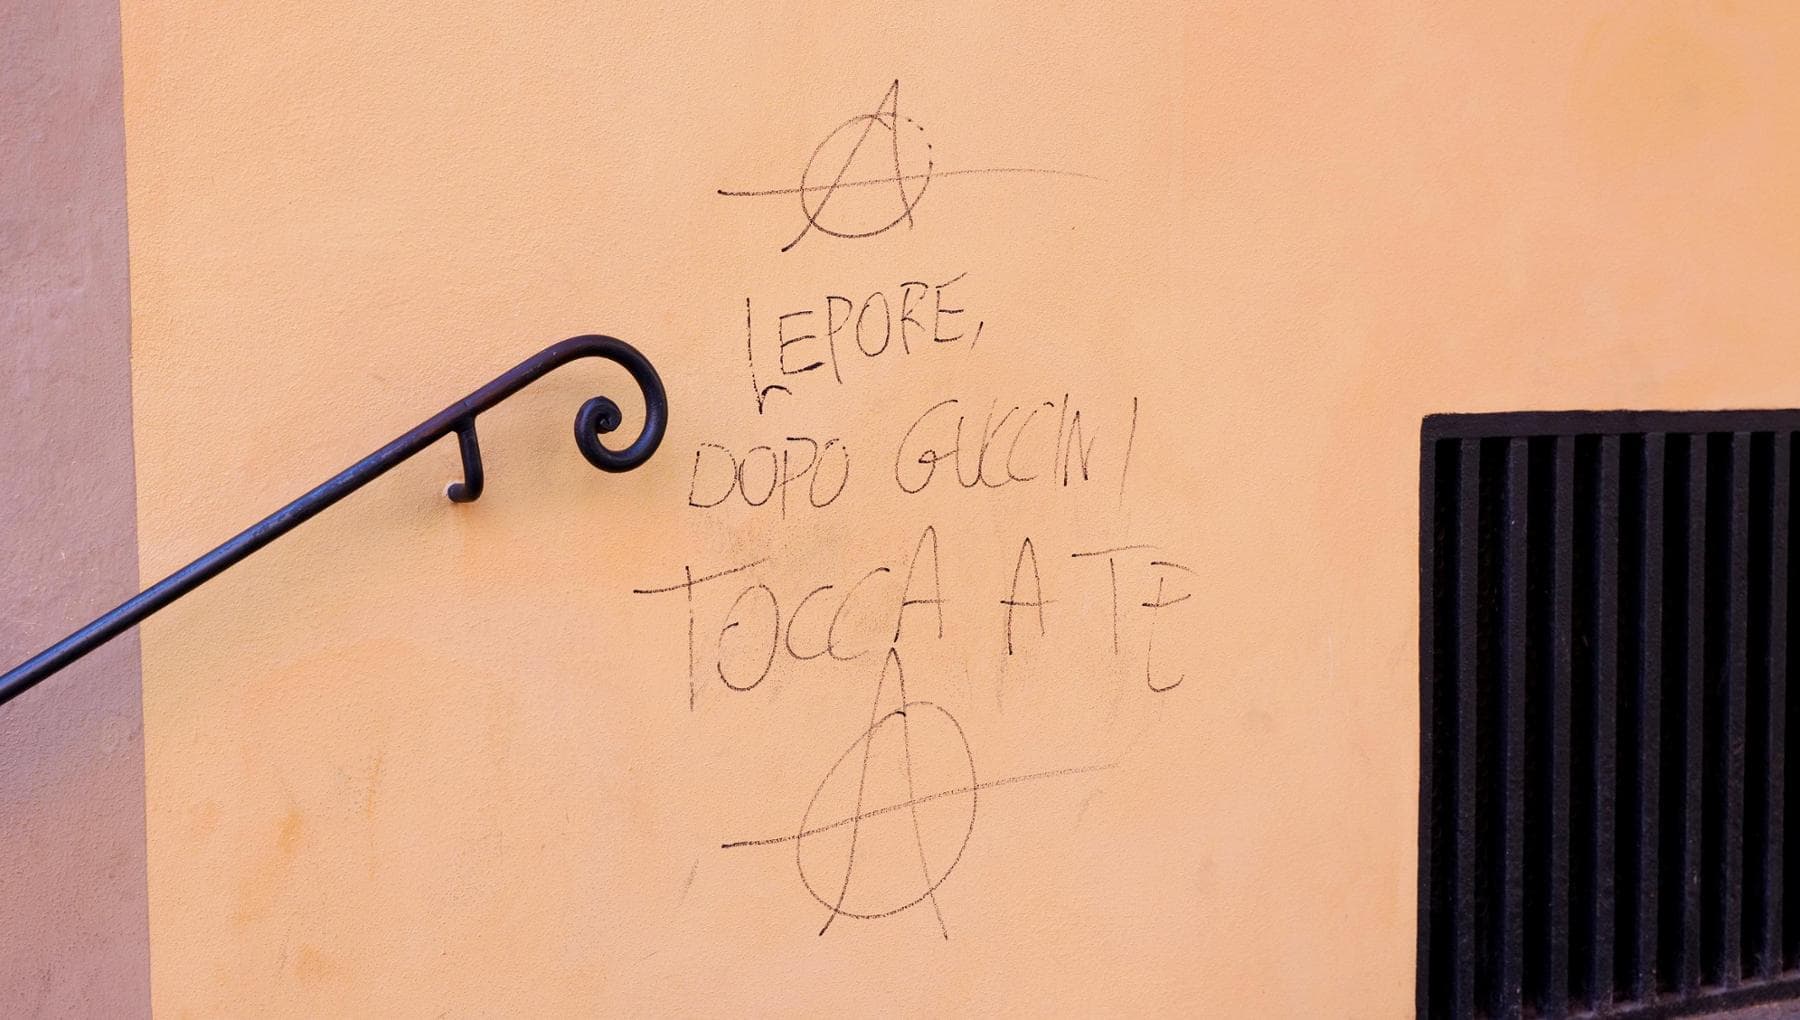 Ⓐ
LEPORE,
DOPO GUCCINI
TOCCA A TE
Ⓐ